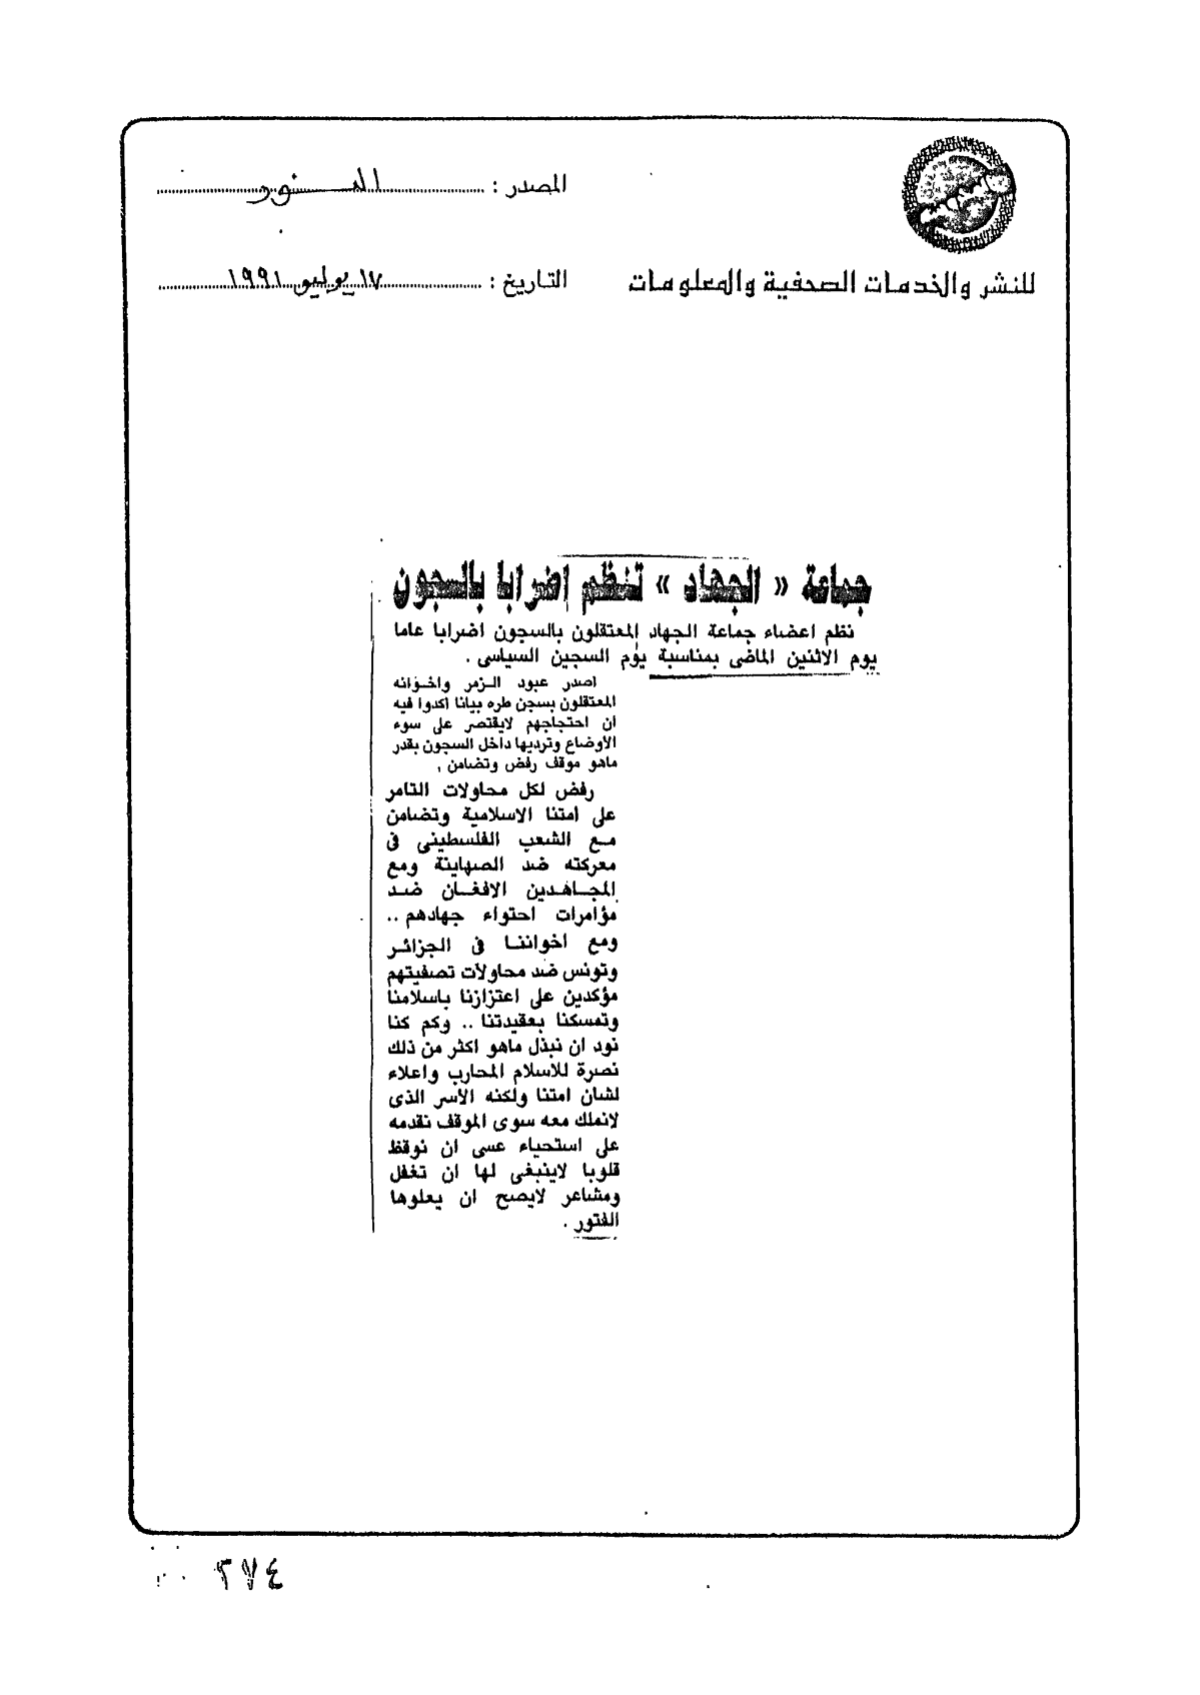 المصدر : النور
للنشر والخدمات الصحفية والمعلومات
التاريخ : ١٧ يوليو ١٩٩١
جماعة « الجهاد » تنظم إضرابا بالسجون
نظم اعضاء جماعة الجهاد المعتقلون بالسجون اضرابا عاما
يوم الاثنين الماضى بمناسبة يوم السجين السياسى .
اصدر عبود الزمر واخوانه
المعتقلون بسجن طره بيانا اكدوا فيه
ان احتجاجهم لايقتصر على سوء
الأوضاع وترديها داخل السجون بقدر
ماهو موقف رفض وتضامن ,
رفض لكل محاولات التامر
على امتنا الاسلامية وتضامن
مع الشعب الفلسطينى فى
معركته ضد الصهاينة ومع
المجاهدين الافغان ضد
مؤامرات احتواء جهادهم ..
ومع اخواننا فى الجزائر
وتونس ضد محاولات تصفيتهم
مؤكدين على اعتزازنا باسلامنا
وتمسكنا بعقيدتنا .. وكم كنا
نود ان نبذل ماهو اكثر من ذلك
نصرة للاسلام المحارب واعلاء
لشان امتنا ولكنه الأسر الذى
لانملك معه سوى الموقف نقدمه
على استحياء عسى ان نوقظ
قلوبا لاينبغى لها ان تغفل
ومشاعر لايصح ان يعلوها
الفتور .
٢٧٤